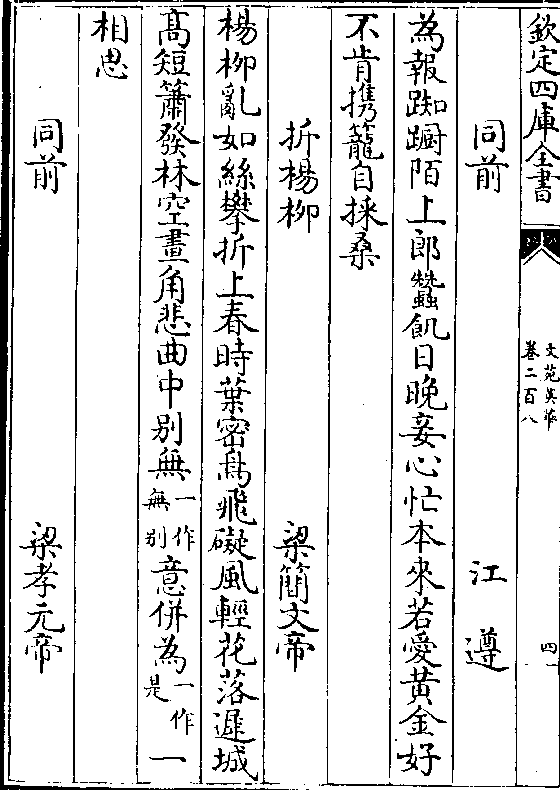 欽定四庫全書
文苑英華
卷二百八
四
同前 江遵
為報踟蹰陌上郎蠶飢日晚妾心忙本來若愛黃金好
不肯攜籠自採桑
折楊柳 梁簡文帝
楊柳亂如絲攀折上春時葉密鳥飛礙風輕花落遲城
髙短簫發林空畫角悲曲中別無一作無別意併為一作是一
相思
同前 梁孝元帝